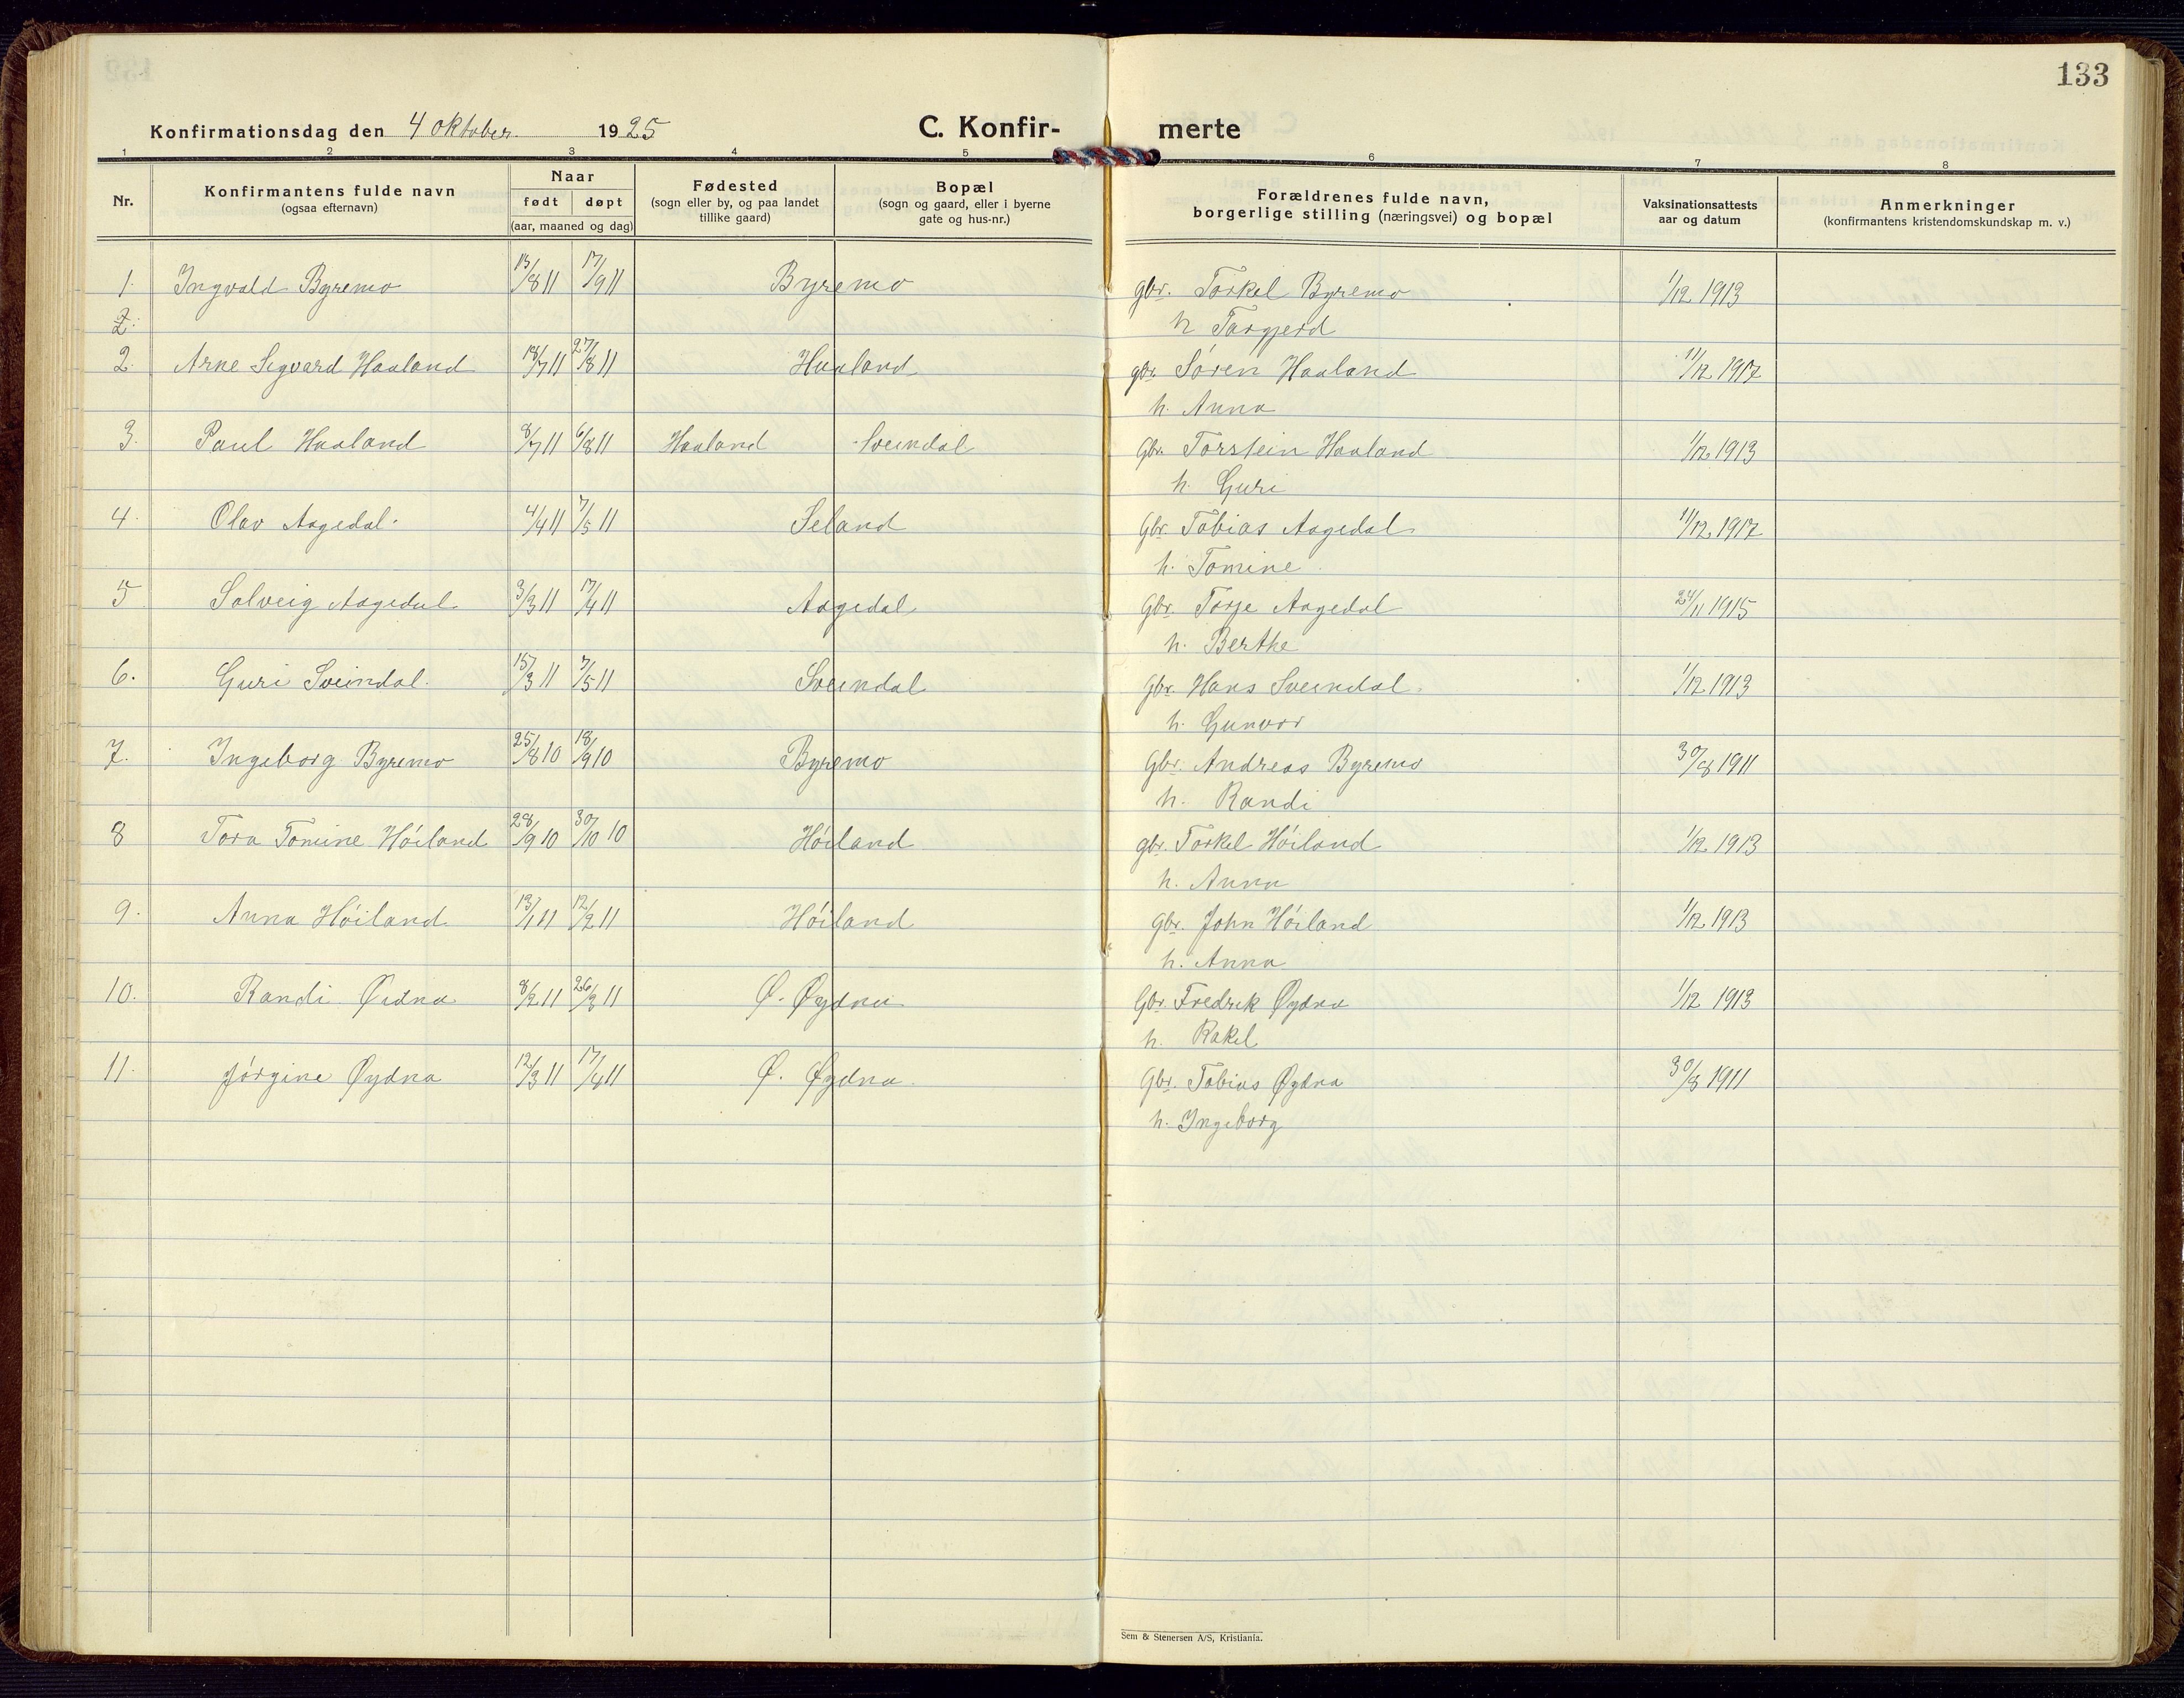 133
Konfirmationsdag den 4 oktober 1925 C. Konfir- merte
1 2 3 4 5 6 7 8
Nr.
Konfirmantens fulde navn
(ogsaa efternavn)
Naar
født døpt
(aar, maaned og dag)
Fødested
(sogn eller by, og paa landet
tillike gaard)
Bopæl
(sogn og gaard, eller i byerne
gate og hus-nr.)
Forældrenes fulde navn,
borgerlige stilling (næringsvei) og bopæl
Vaksinationsattests
aar og datum
Anmerkninger
(konfirmantens kristendomskundskap m. v.)
1. Ingvald Byremo 13/8 11 17/9 11 Byremo gbr. Torkel Byremo 1/12 1913
2. h Targjerd
2. Arne Sigvard Haaland 18/7 11 27/8 11 Haaland gbr. Søren Haaland 11/12 1917
h. Anna
3. Paul Haaland 8/7 11 6/8 11 Haaland Sveindal Gbr. Torstein Haaland 1/12 1913
h. Guri
4. Olav Aagedal. 4/4 11 7/5 11 Seland Gbr. Tobias Aagedal 11/12 1917
h. Tomine
5 Solveig Aagedal 3/3 11 17/4 11 Aagedal Gbr. Torje Aagedal 24/11 1915
h. Berthe
6. Guri Sveindal. 15/3 11 7/5 11 Sveindal Gbr. Hans Sveindal. 1/12 1913
h. Gunvor
7. Ingeborg Byremo 25/8 10 18/9 10 Byremo Gbr. Andreas Byremo 30/8 1911
h. Randi
8 Tora Tomine Høiland 28/9 10 30/10 10 Høiland gbr. Torkel Høiland 1/12 1913
h. Anna
9. Anna Høiland 13/1 11 12/2 11 Høiland Gbr. John Høiland 1/12 1913
h. Anna
10. Randi Øidna 8/2 11 26/3 11 Ø. Øydna Gbr. Fredrik Øydna 1/12 1913
h. Rakel
11. Jørgine Øydna 12/3 11 17/4 11 Ø. Øydna. Gbr. Tobias Øydna 30/8 1911
h. Ingeborg
Sem & Stenersen A/S, Kristiania.